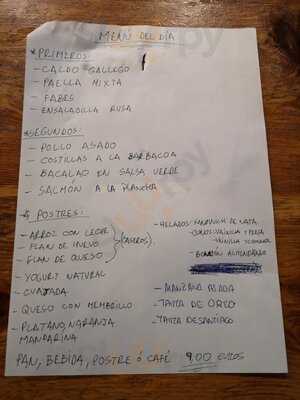 MENÚ DEL DÍA
*PRIMEROS:
- CALDO GALLEGO
- PAELLA MIXTA
- FABES
- ENSALADILLA RUSA
*SEGUNDOS:
- POLLO ASADO
- COSTILLAS A LA BARBACOA
- BACALAO EN SALSA VERDE
- SALMÓN A LA PLANCHA
POSTRES:
- ARROZ CON LECHE
- FLAN DE HUEVO
- FLAN DE QUESO
(CASEROS)
- YOGURT NATURAL
- CUAJADA
- QUESO CON MEMBRILLO
- PLATANO, NARANJA
MANDARINA
- HELADOS: SANDWICH DE NATA
VAINILLA Y
VAINILLA
- BOMBÓN ALMENDRADO
- MANZANA ASADA
- TARTA DE
- TARTA DE SANTIAGO
PAN, BEBIDA, POSTRE Ó CAFÉ 9,00 EUROS